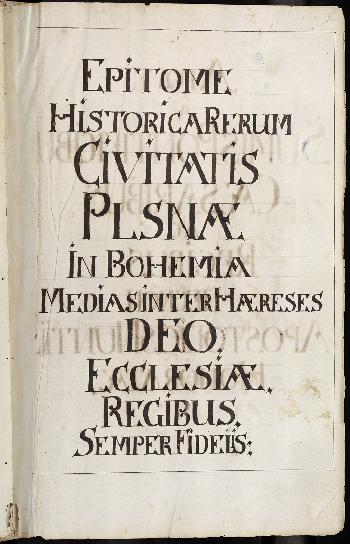 EPITOME
HISTORICA RERUM
CIVITATIS
PLSNÆ
IN BOHEMIA
MEDIAS INTER HÆRESES
DEO,
ECCLESIÆ,
REGIBUS,
SEMPER FIDELIS: